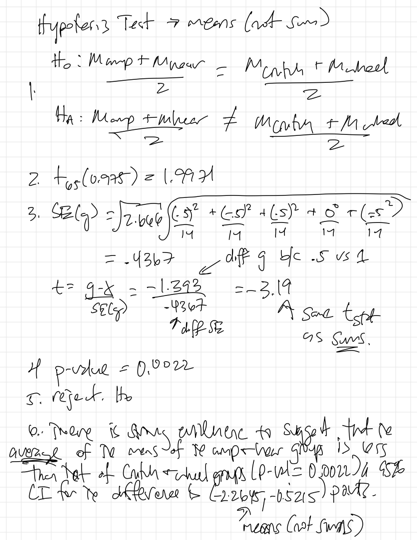 Hypothesis Test → means (not sums)
1. H₀: Mamp + Mhear / 2 = Mcrutch + Mwheel / 2
Hₐ: Mamp + Mhear / 2 ≠ Mcrutch + Mwheel / 2
2. t₆₅(0.975) = 1.9971
3. SE(g) = √2.666 √(.5)²/14 + (-.5)²/14 + (.5)²/14 + 0⁰/14 + (-.5²)/14
= .4367
diff g b/c .5 vs 1
t = g-γ / SE(g) = -1.393 / .4367 = -3.19
↑ diff SE
↑ same t stat as sums.
4 p-value = 0.0022
5. reject H₀
6. There is strong evidence to suggest that the
average of the means of the amp + hear groups is less
than that of Crutch + wheel groups (p-val = 0.0022) a 95%
CI for the difference is (-2.2645, -0.5215) points.
↑ means (not sums)